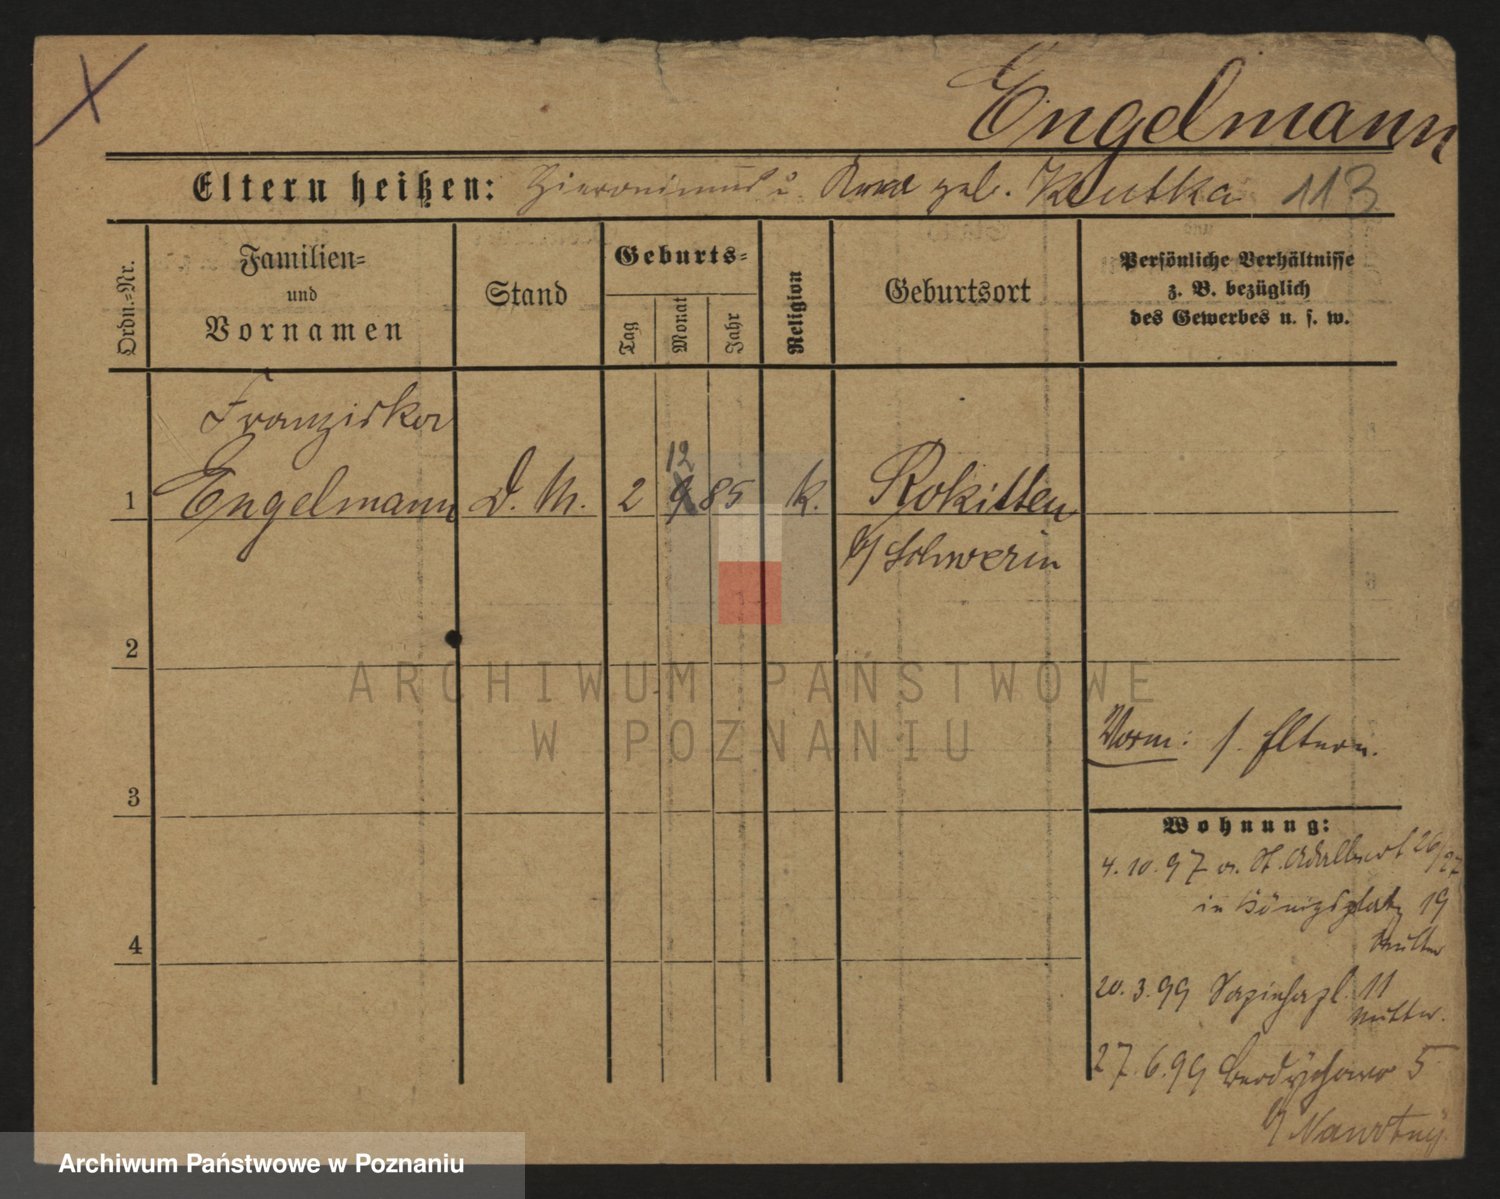 Engelmann
Eltern heißen: Hieronimus u. geb. Kutka 113
Ordn.-Nr.
Familien-
und
Vornamen
Stand
Geburts-
Tag
Monat
Jahr
Religion
Geburtsort
Persönliche Verhältnisse
z. B. bezüglich
des Gewerbes u. s. w.
Franziska
12
1 Engelmann D. M. 2 9 85 k. Rokitten
b/ Schwerin
2
ARCHIWUM PAŃSTWOWE
W POZNANIU
Vorm: s. Eltern.
3
Wohnung:
4.10.97 v. St. Adalbert 26/27
in Königsplatz 19
Mutter
4
20.3.99 Sapiehapl. 11
Mutter.
27.6.99 Berdychowo 5
b/ Nawrotny
Archiwum Państwowe w Poznaniu